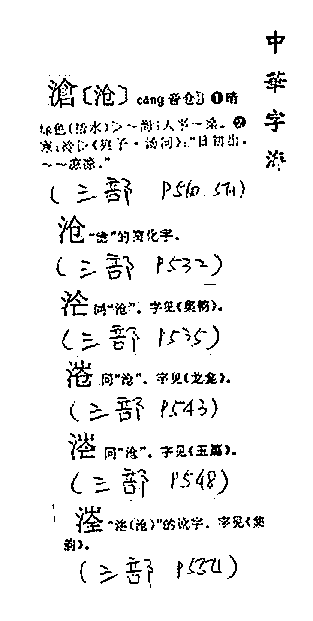 中華字海
滄〔沧〕cāng 音仓 ❶暗
绿色(指水)▷～海|人事～桑。❷
寒;冷▷《列子·汤问》:“日初出,
～～凉凉。”
(氵部 P560.
沧 “滄”的简化字。
(氵部 P532)
同“沧”。字见《集韵》。
(氵部 P535)
同“沧”。字见《龙龛》。
(氵部 P543)
同“沧”。字见《玉篇》。
(氵部 P548)
“滄(沧)”的讹字。字见《集
韵》。
(氵部